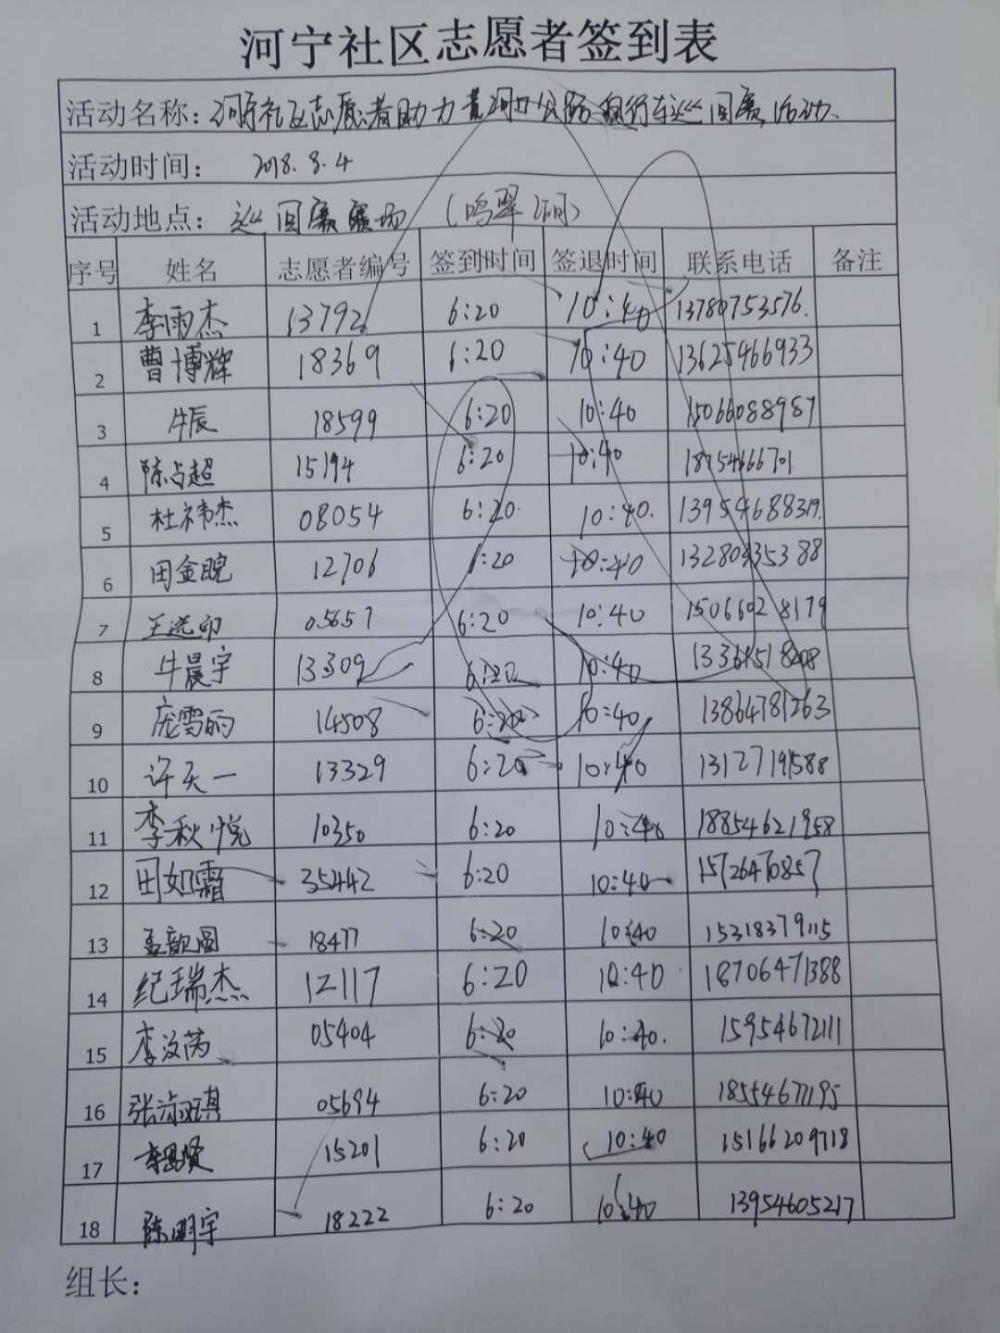 河宁社区志愿者签到表
活动名称：河宁社区志愿者助力黄河口公路自行车巡回赛活动.
活动时间： 2018.8.4
活动地点： 巡回赛赛场 (鸣翠湖)
序号 姓名 志愿者编号 签到时间 签退时间 联系电话 备注
1 李雨杰 13792 6:20 10:40 13780753576.
2 曹博辉 18369 6:20 10:40 13625466933
3 牛辰 18599 6:20 10:40 15066088987
4 陈占超 15194 6:20 10:40 18754666701
5 杜祎杰 08054 6:20. 10:40. 13954688319.
6 田金 12706 6:20 10:40
7 王 05657 6:20 10:40 15066028179
8 牛晨宇 13309 6:20 10:40
9 庞雪丽 14508 6:20 10:40 13864781263
10 许天一 13329 6:20 10:40 13127191588
11 李秋悦 10350 6:20 10:40 18854621958
12 田如霜 35442 6:20 10:40 15726470857
13 孟歆 18477 6:20 10:40 15318379115
14 纪瑞杰 12117 6:20 10:40 18706471388
15 李汶芮 05404 6:20 10:40. 15954672111
16 张淑琪 05694 6:20 10:40 18554671195
17 李思贤 15201 6:20 10:40 15166209718
18 陈明宇 18222 6:20 10:40 13954605217
组长：